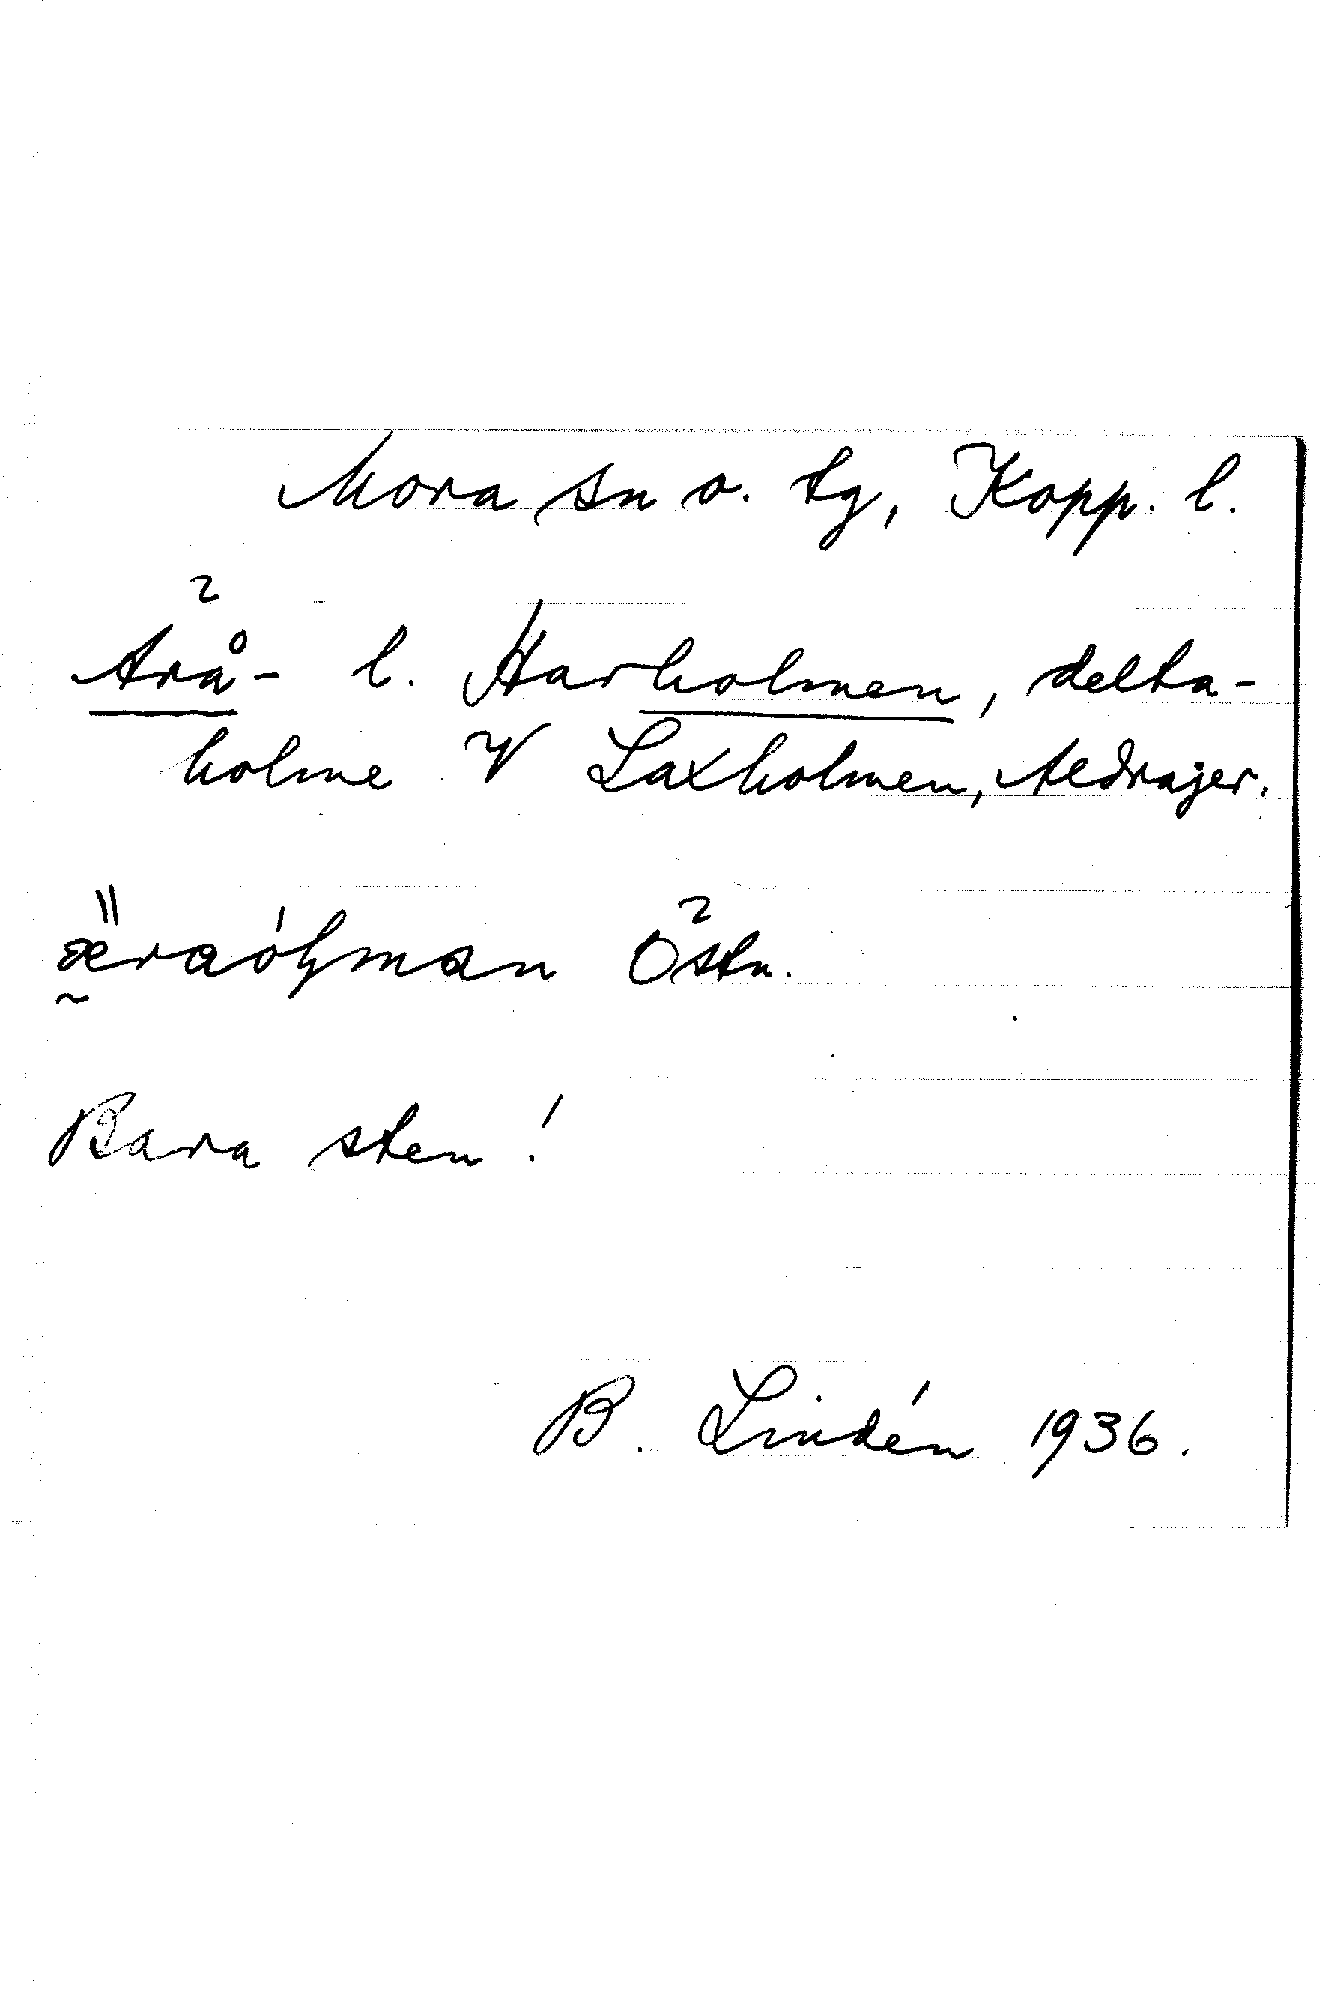 Mora sn o. tg, Kopp. l.
Ärå- l. Harholmen, delta-
holme V Laxholmen,
æ̰raóɫman Östn.
Bara sten!
B. Lindén 1936.